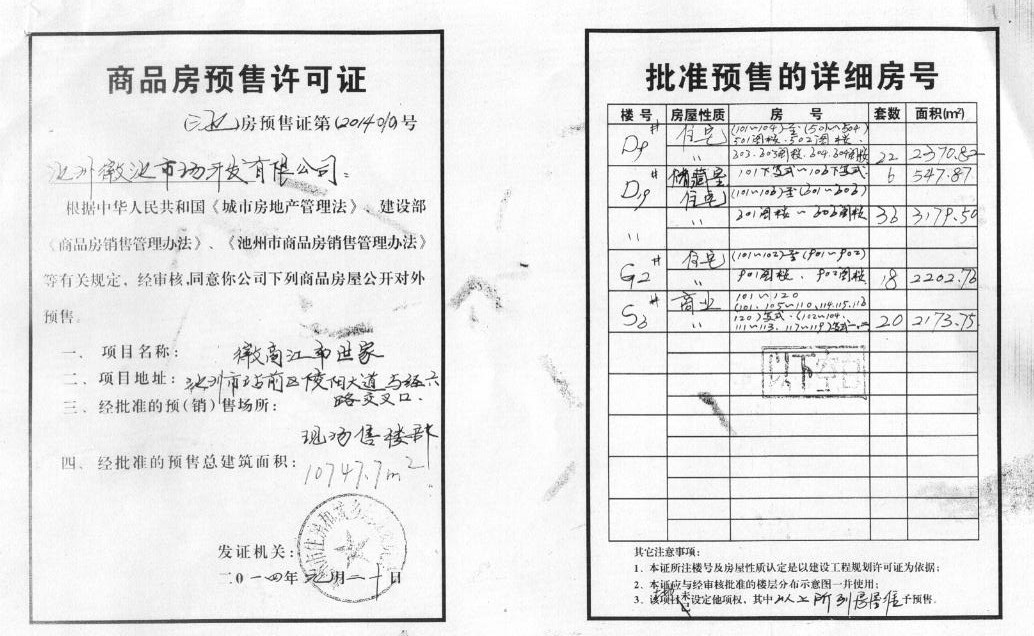 商品房预售许可证
房预售证第 号
池州徽池市场开发有限公司:
根据中华人民共和国《城市房地产管理法》、建设部
《商品房销售管理办法》、《池州市商品房销售管理办法》
等有关规定,经审核,同意你公司下列商品房屋公开对外
预售。
一、项目名称: 徽商江南世家
二、项目地址: 池州市站前区陵阳大道与经六
路交叉口.
三、经批准的预(销)售场所:
现场售楼部
四、经批准的预售总建筑面积: 10747.7m²
发证机关:
二〇一四年 月二十日
批准预售的详细房号
楼号 房屋性质 房号 套数 面积(m²)
D9# 住宅 (101~104)至(501~504)
501阁楼.502阁楼
" 303.303阁楼.304.304阁楼 22 2370.82
储藏室 101下 式~106下 式 6 547.87
住宅 (101~106)至(301~306)
" " 301阁楼~306阁楼 36 3179.50
G2# 住宅 (101~102)至(901~902)
" 901阁楼.902阁楼 18 2202.76
S6# 商业 101~120
(101.105~110.114.115.116
" 120) 式.(102~104.
111~113.117~119) 式 20 2173.75
以下空白
其它注意事项:
1、本证所注楼号及房屋性质认定是以建设工程规划许可证为依据;
2、本证应与经审核批准的楼层分布示意图一并使用;
3、该项目 未设定他项权,其中以上所列房屋准予预售。